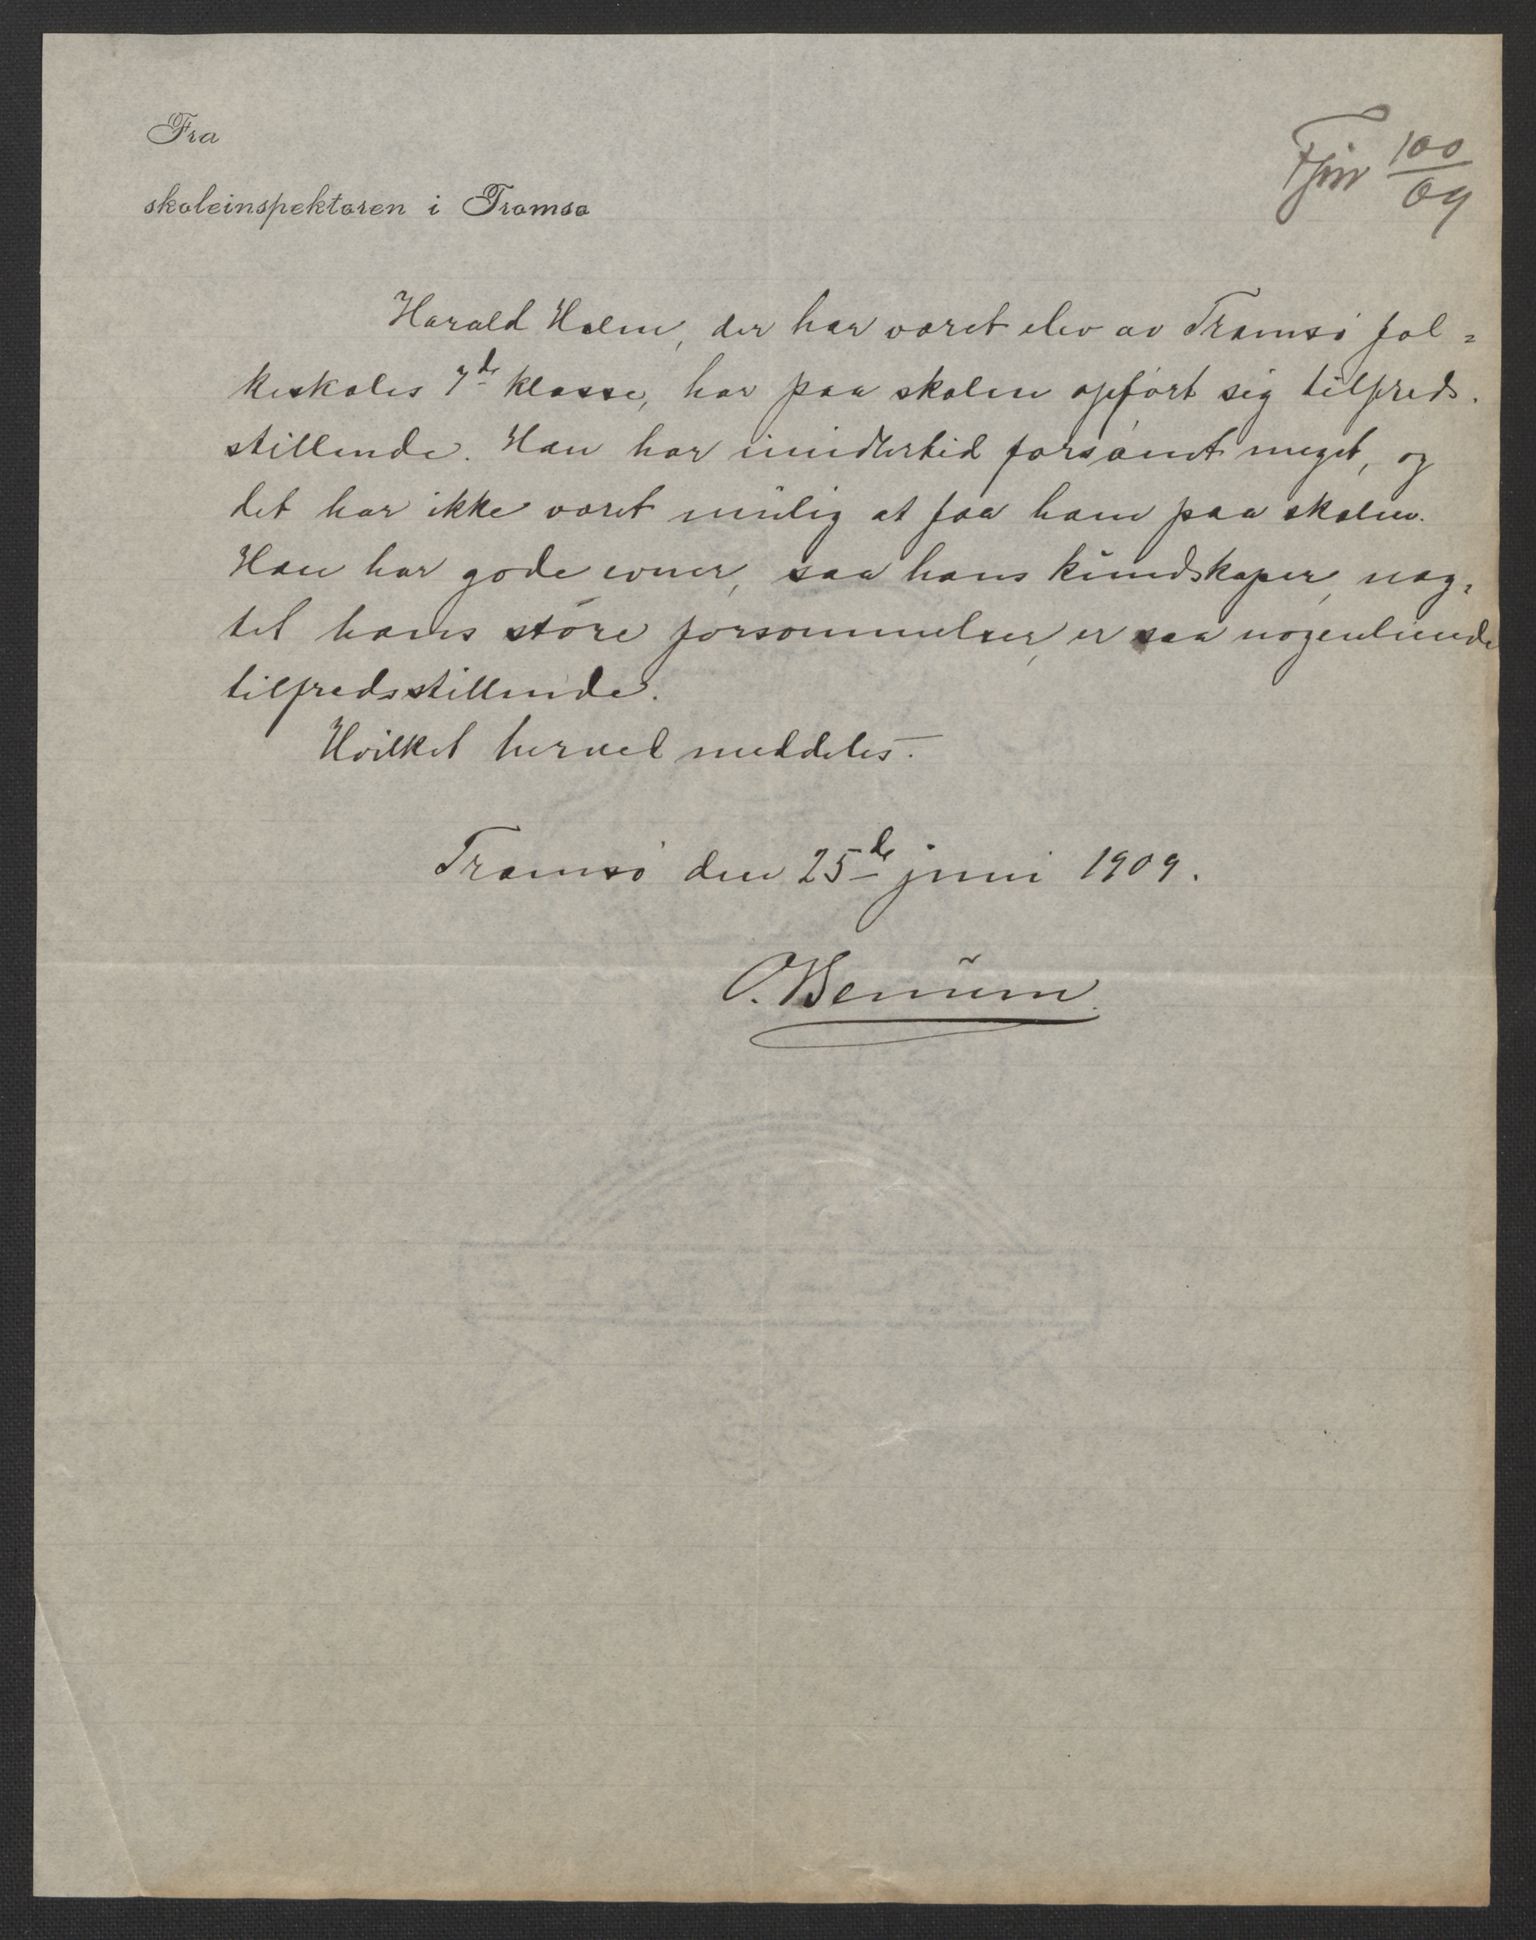 Fra
skoleinspektøren i Tromsø
100
09
Harald Holm, der har været elev av Tromsø fol=
keskoles 7de klasse, har paa skolen opført sig tilfreds-
stillende. Han har imidlertid forsømt meget, og
det har ikke været mulig at faa ham paa skolen.
Han har gode evner, saa hans kundskaper, uag=
tet hans store forsømmelser, er saa nogenlunde
tilfredsstillende.
Hvilket herved meddeles.
Tromsø den 25de juni 1909.
O. Bernum